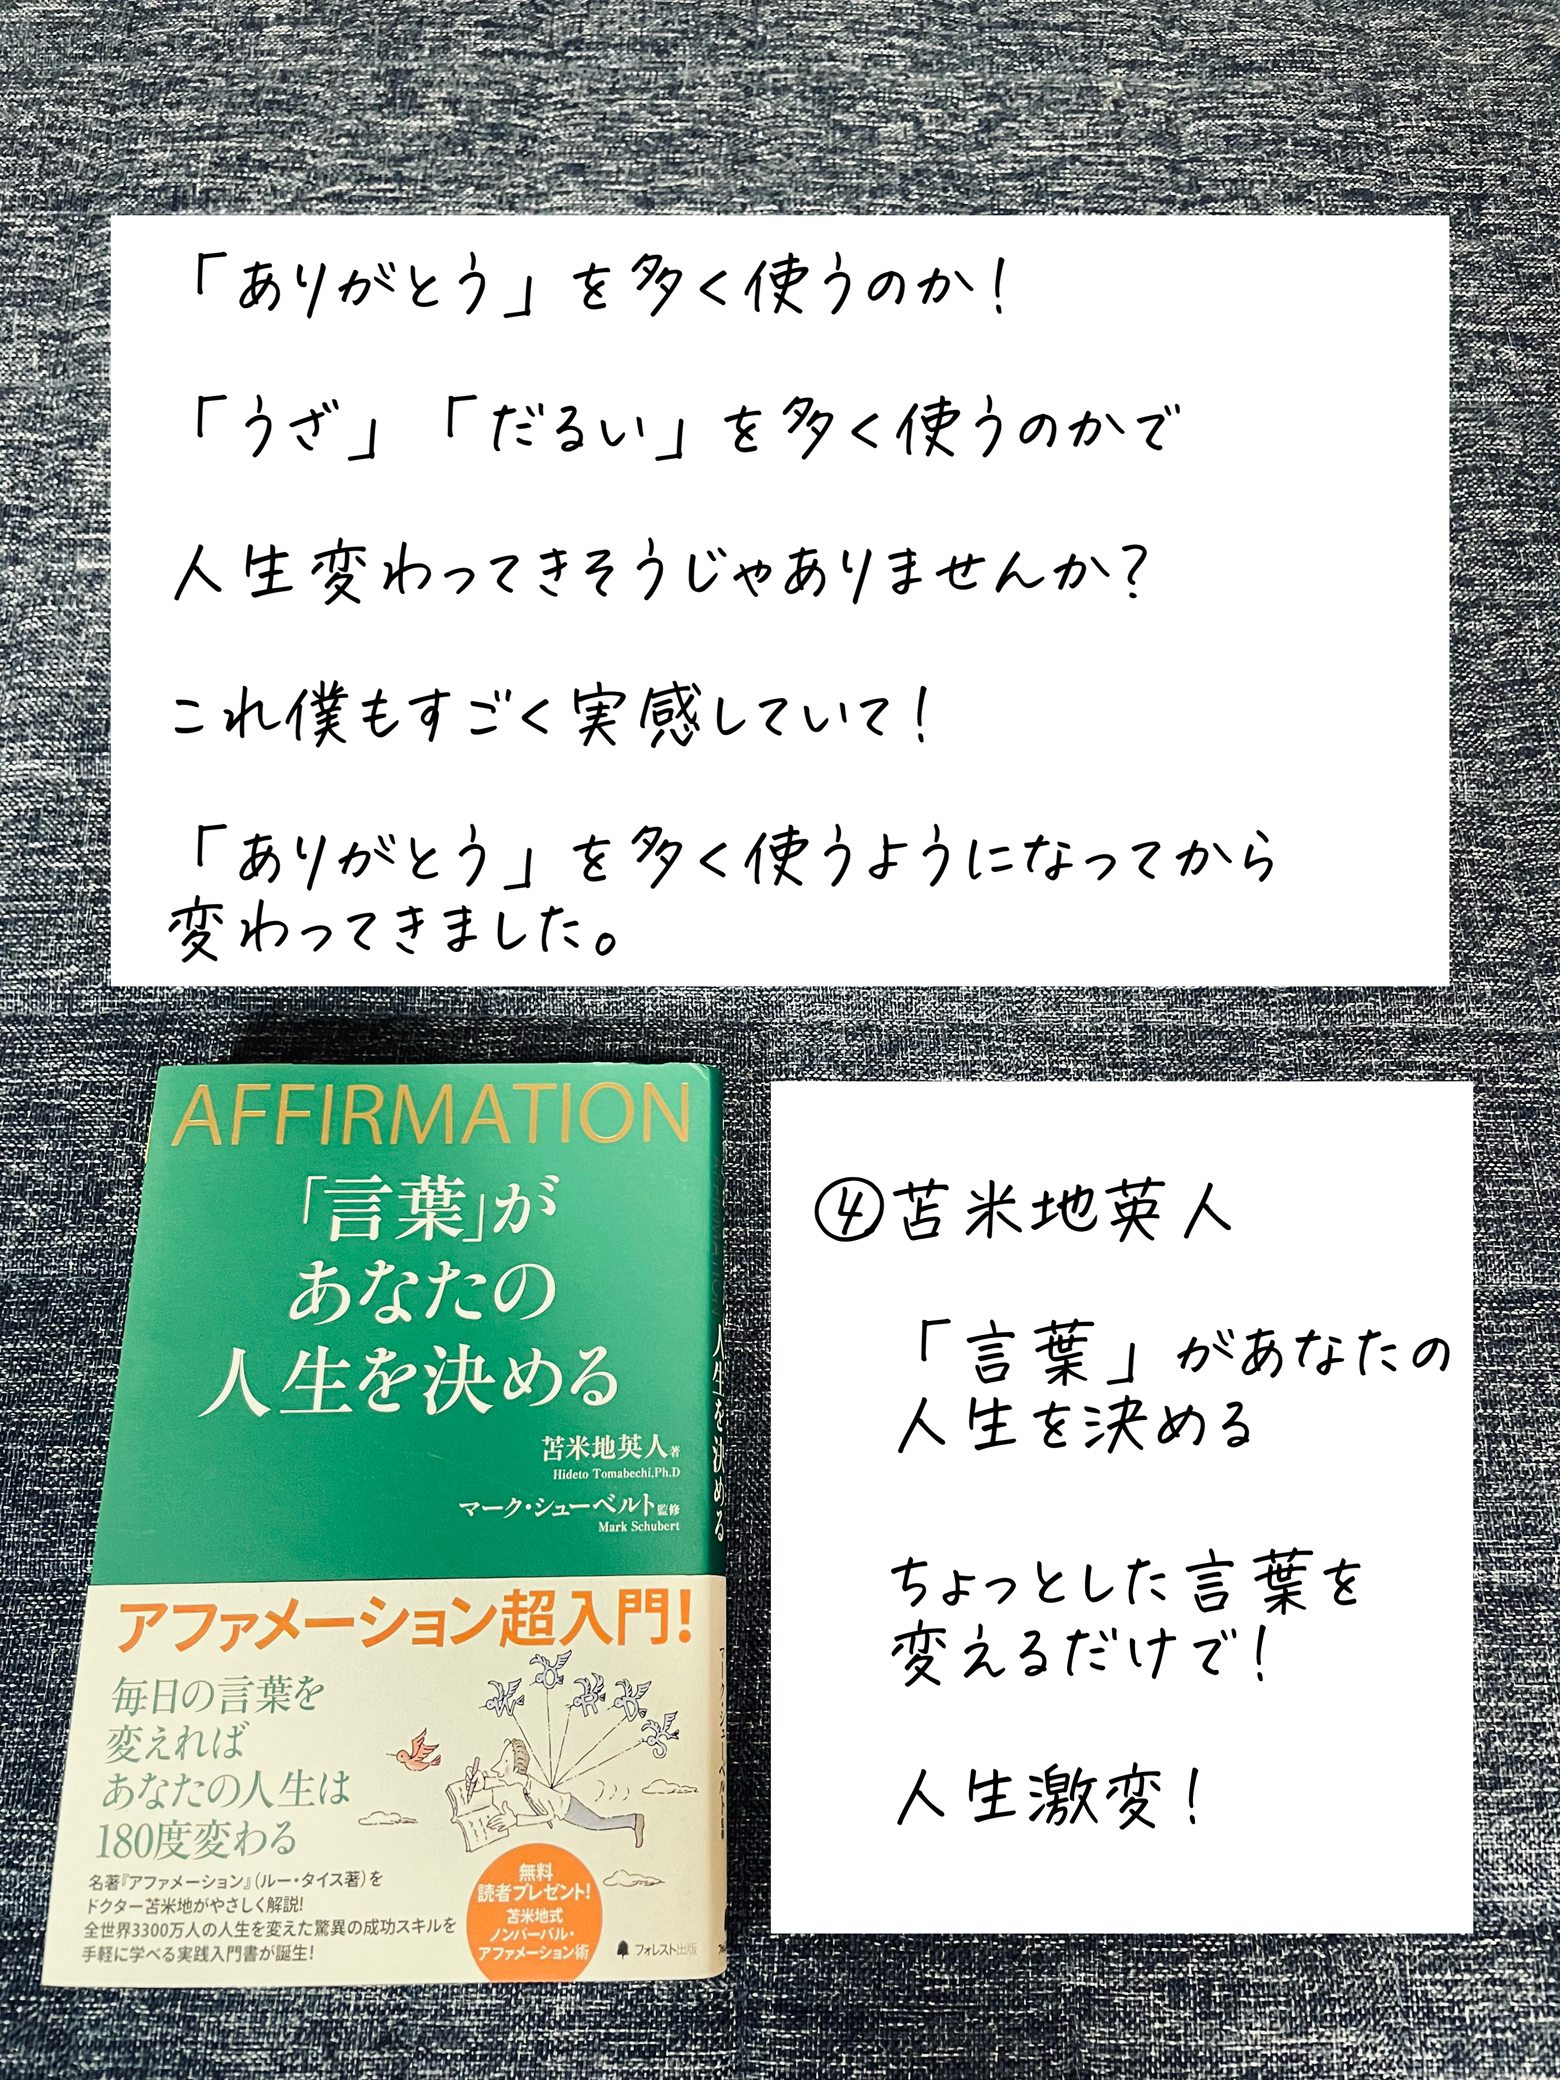 「ありがとう」を多く使うのか！
「うざ」「だるい」を多く使うのかで
人生変わってきそうじゃありませんか？
これ僕もすごく実感していて！
「ありがとう」を多く使うようになってから
変わってきました。
AFFIRMATION
「言葉」が
あなたの
人生を決める
苫米地英人著
Hideto Tomabechi,Ph.D
マーク・シューベルト監修
Mark Schubert
人生を決める
アファメーション超入門！
毎日の言葉を
変えれば
あなたの人生は
180度変わる
WORDS
名著『アファメーション』（ルー・タイス著）を
ドクター苫米地がやさしく解説！
全世界3300万人の人生を変えた驚異の成功スキルを
手軽に学べる実践入門書が誕生！
無料
読者プレゼント！
苫米地式
ノンバーバル・
アファメーション術
フォレスト出版
④苫米地英人
「言葉」があなたの
人生を決める
ちょっとした言葉を
変えるだけで！
人生激変！